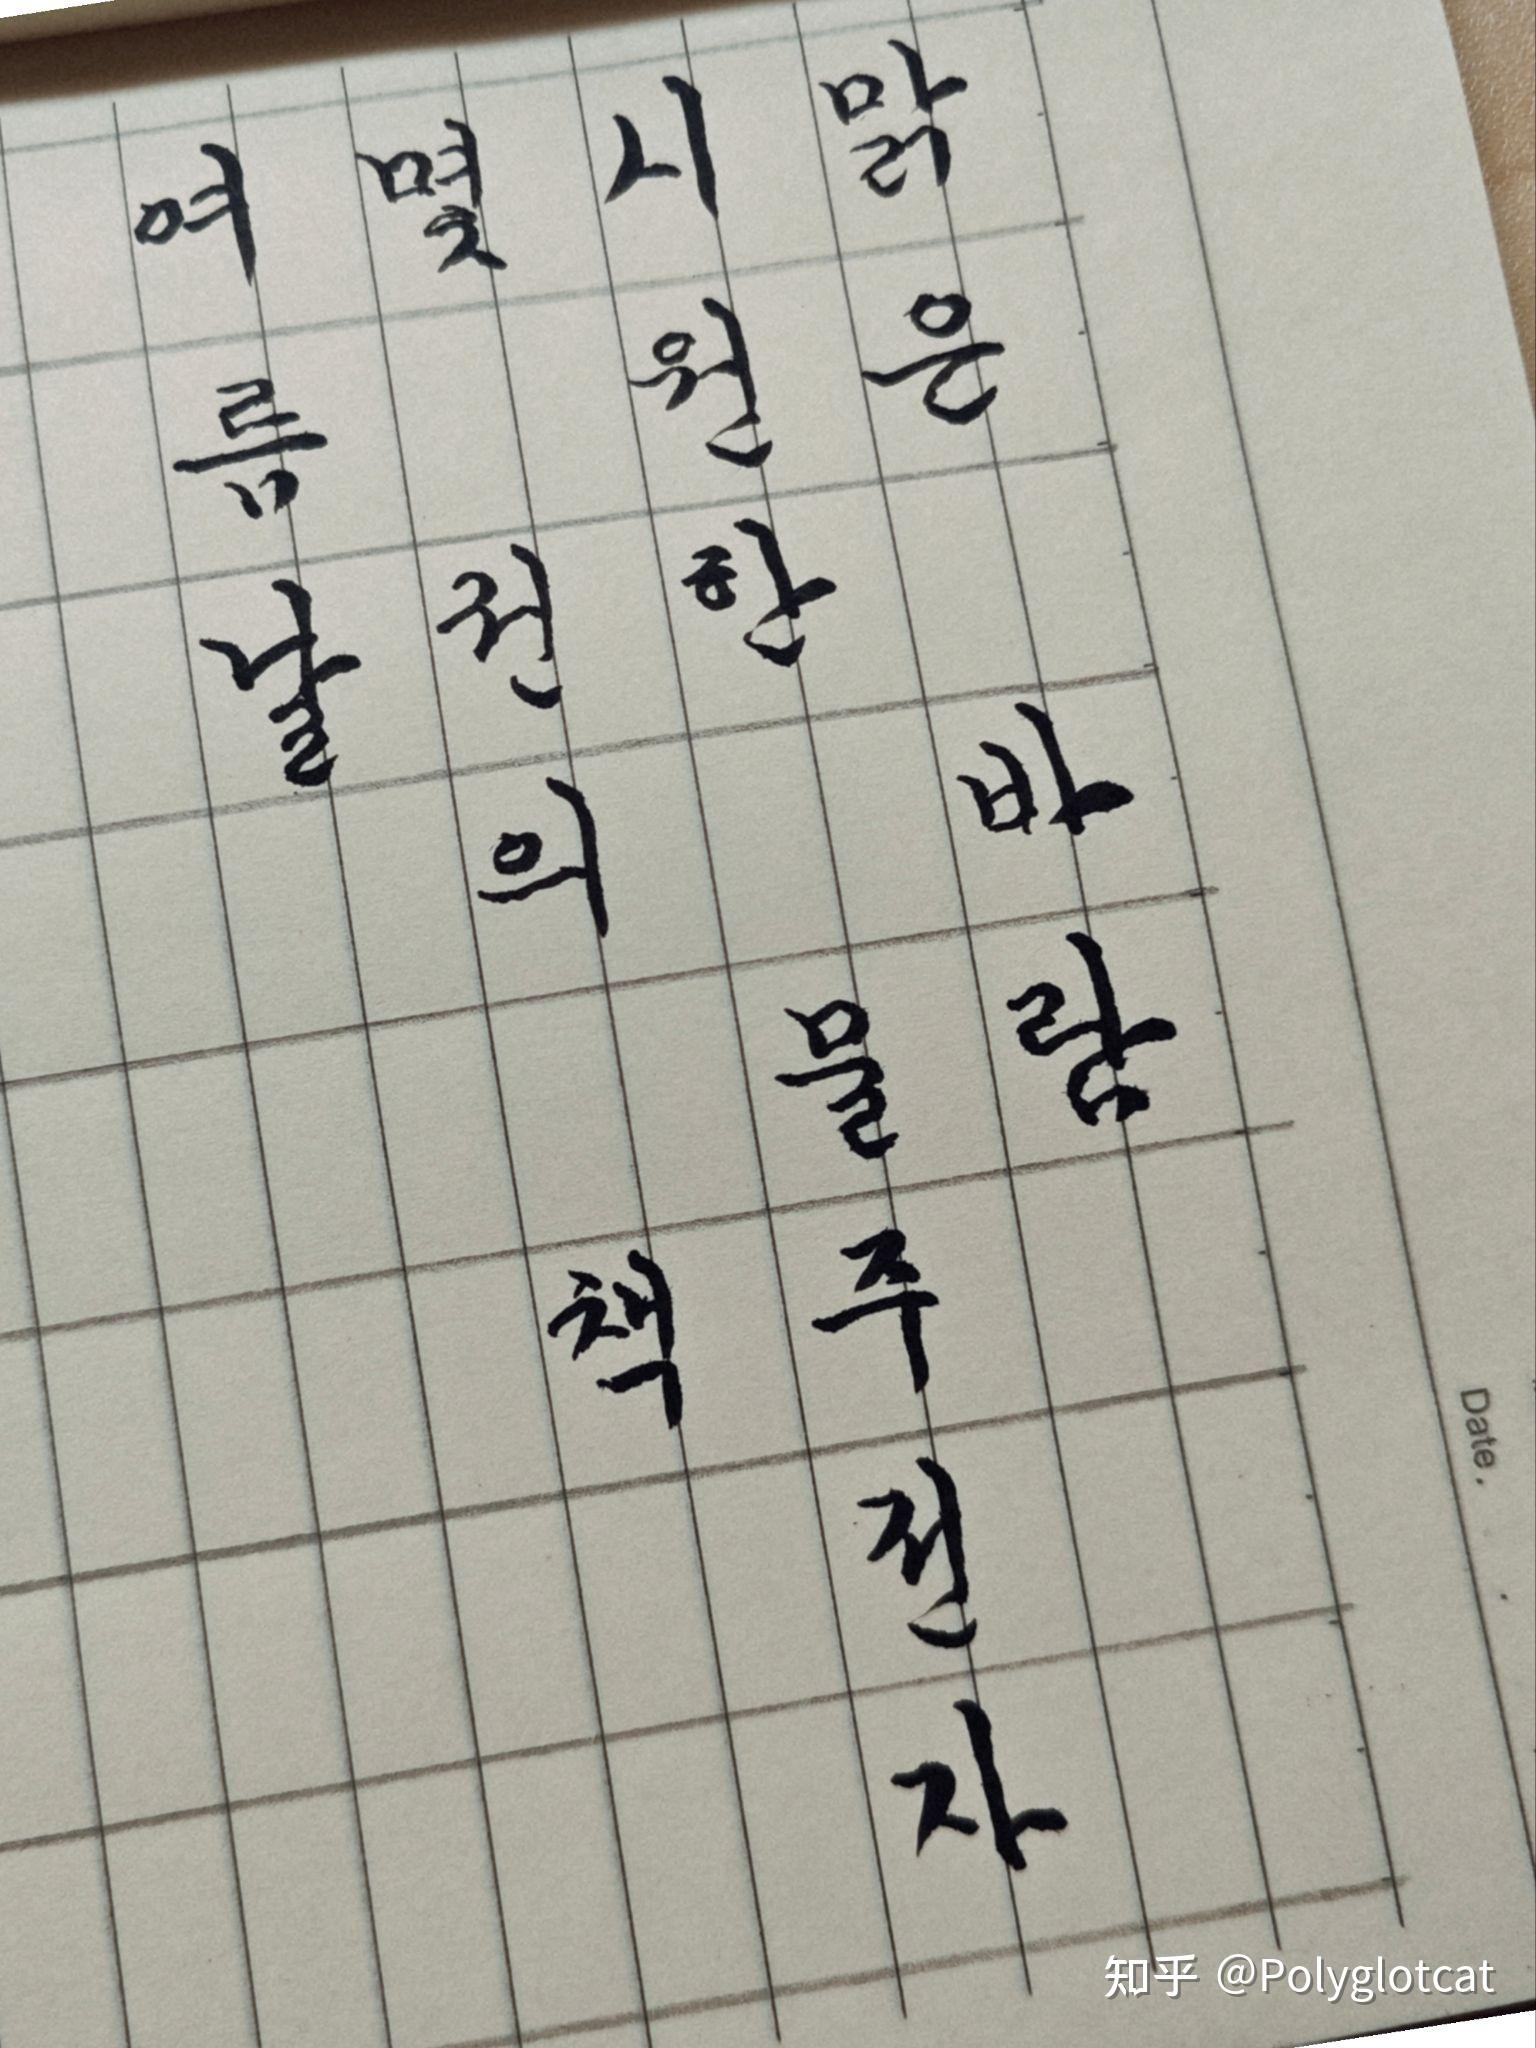 맑은 바람
시원한 물주전자
몇 권의 책
여름날
Date.
知乎 @Polyglotcat